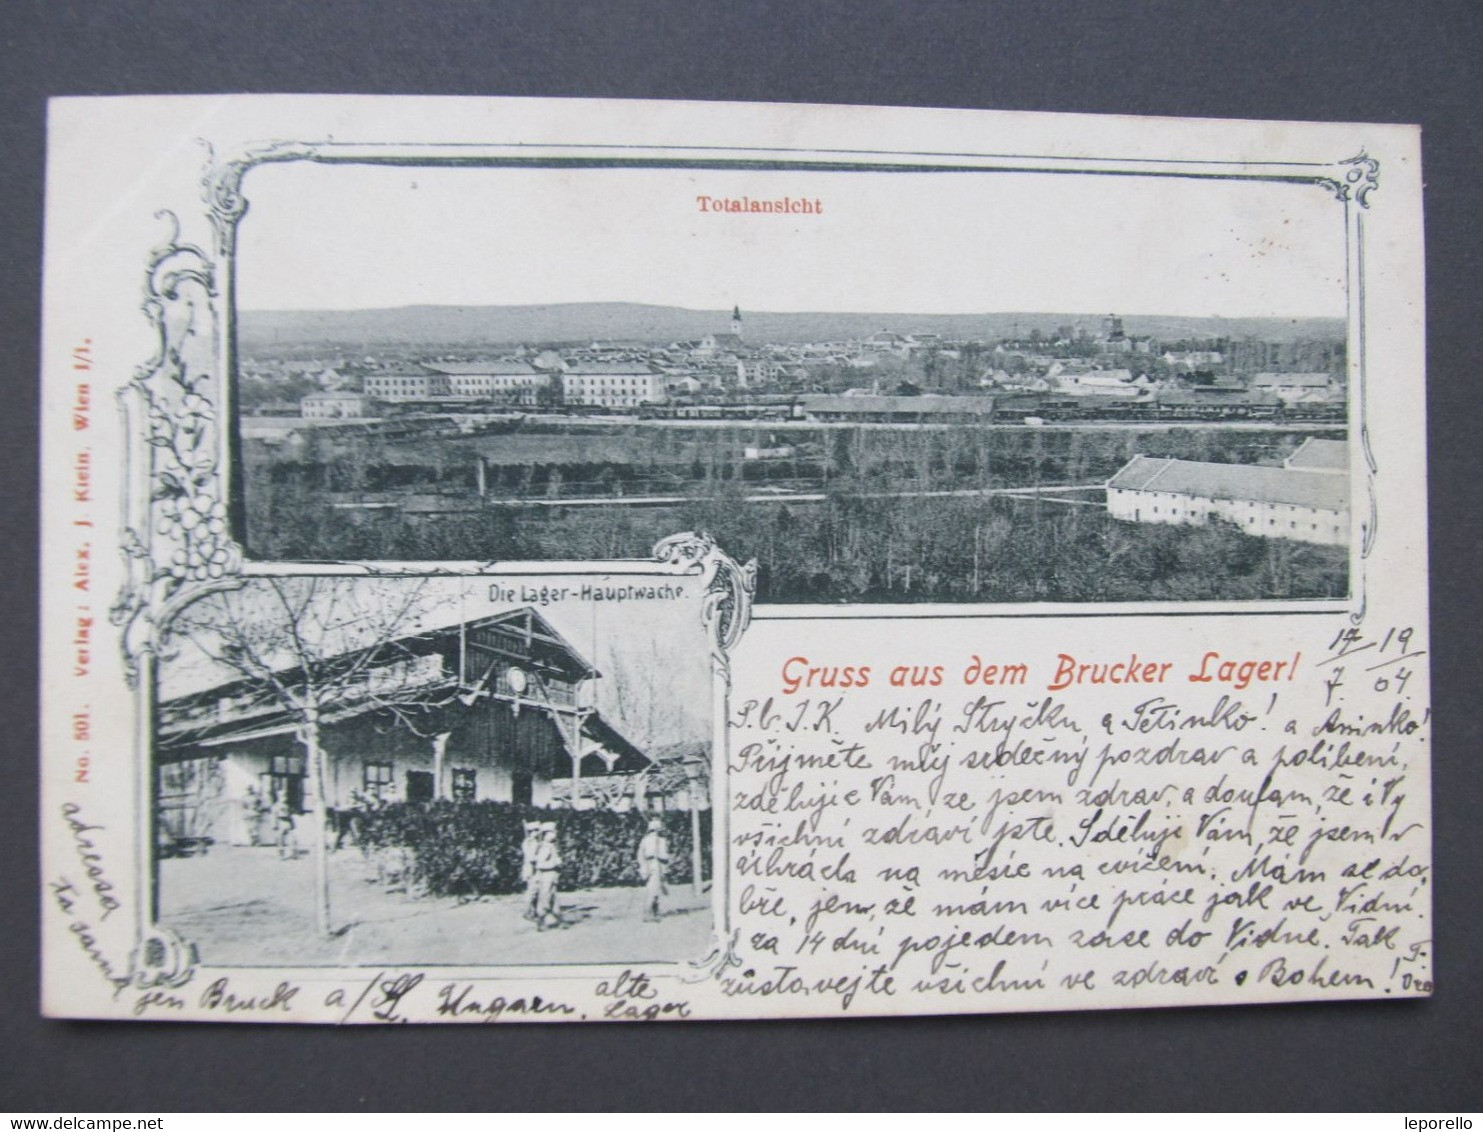 Totalansicht
Die Lager-Hauptwache.
No. 501. Verlag: Alex. J. Klein, Wien I/1.
Gruss aus dem Brucker Lager!
17 19
7. 04.
P.b.J.K. Milý Strýčku, a Tetinko! a Aninko!
Přijměte můj srdečný pozdrav a políbení,
zděluji Vám, že jsem zdráv, a doufam, že i Vy
všichni zdrávi jste. Sděluji Vám, že jsem v
Uhrách na měsíc na cvičení. Mám se do-
bře, jen, že mám více práce jak ve Vídni.
za 14 dní pojedem zase do Vídně. Tak
zůstavejte všichni ve zdraví s Bohem!
adressa
ta samá
jen Bruck a/L. Ungarn. alte Lager
leporello